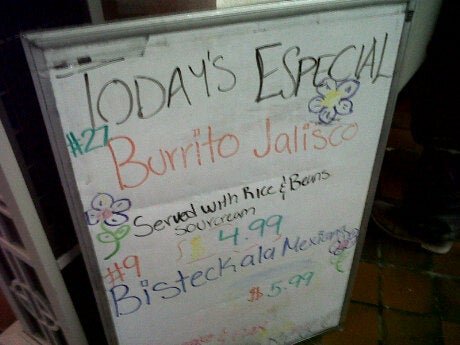 TODAY'S ESPECIAL
#27
Burrito Jalisco
Served with Rice & Beans
sourcream
$ 4.99
#9
Bisteckala Mexicana
$5.99